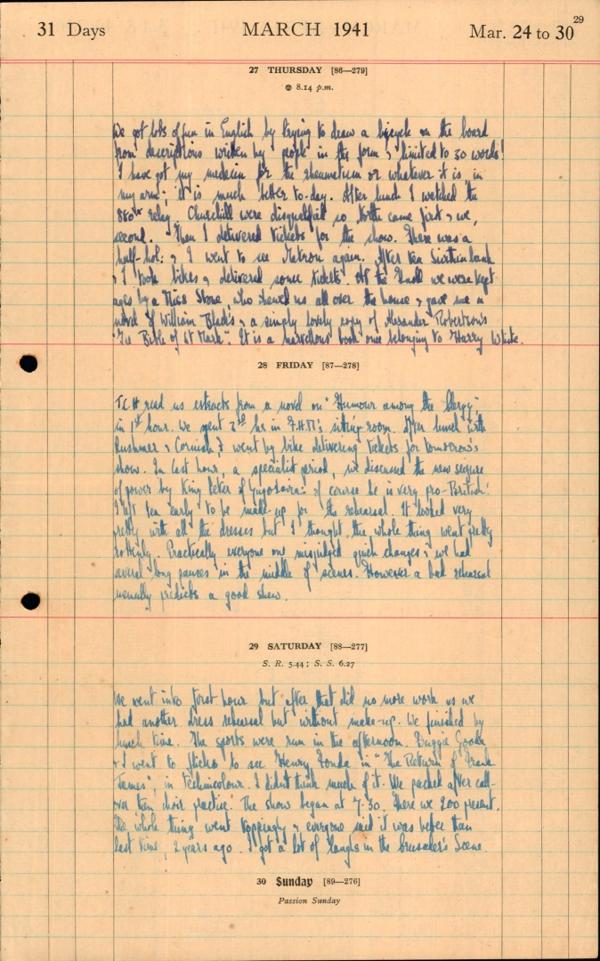 29
31 Days MARCH 1941 Mar. 24 to 30
27 THURSDAY [86—279]
8.14 p.m.
We got lots of fun in English by trying to draw a bicycle on the board
from descriptions written by people in the form, limited to 50 words!
I have got my medicine for the rheumatism or whatever it is in
my arm; it is much better to-day. After lunch I watched the
880x relay. Churchill were disqualified so North came first & we,
second. Then I delivered tickets for the show. There was a
half-hol: & I went to see Matron again. After tea
& I took bikes & delivered some tickets. At the Knoll we were kept
ages by a Miss Stone, who shewed us all over the house & gave me a
novel of William Black's & a simply lovely copy of Alexander Robertson's
"The Bible of St Mark". It is a marvellous book once belonging to Harry White.
28 FRIDAY [87—278]
read us extracts from a novel on "Humour among the Clergy"
in 1st hour. We spent 2nd hr in sitting room. After lunch with
Rushmer & Cornish I went by bike delivering tickets for tomorrow's
show. In last hour, a specialist period, we discussed the new seizure
of power by King Peter of Yugoslavia: of course he is very pro-British!
I left tea early to be made-up for the rehearsal. It looked very
pretty with all the dresses but I thought the whole thing went pretty
rottenly. Practically everyone misjudged quick changes & we had
several long pauses in the middle of scenes. However a bad rehearsal
usually predicts a good show.
29 SATURDAY [88—277]
S. R. 5.44; S. S. 6.27
We went into first hour but after that did no more work as we
had another dress rehearsal but without make-up. We finished by
lunch time. The sports were run in the afternoon.
& I went to to see Henry Fonda in "The Return of Frank
James", in Technicolour. I didn't think much of it. We packed after call-
over then choir practice. The show began at 7.30. There we 200 present.
The whole thing went toppingly & everyone said it was better than
last time, 2 years ago. I got a lot of laughs in the Crusader's Scene.
30 Sunday [89—276]
Passion Sunday